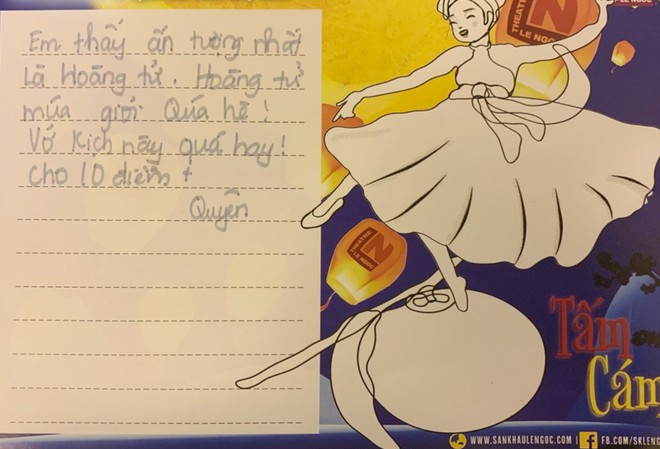 Em thấy ấn tượng nhất
Là Hoàng tử. Hoàng tử
múa giỏi Quá hè!
Vở kịch này quá hay!
Cho 10 điểm +
Quyên
THEATRE
LE NGOC
LE NGOC
THEATRE
LE NGOC
Tấm
Cám
WWW.SANKHAULENGOC.COM | FB.COM/SKLENG